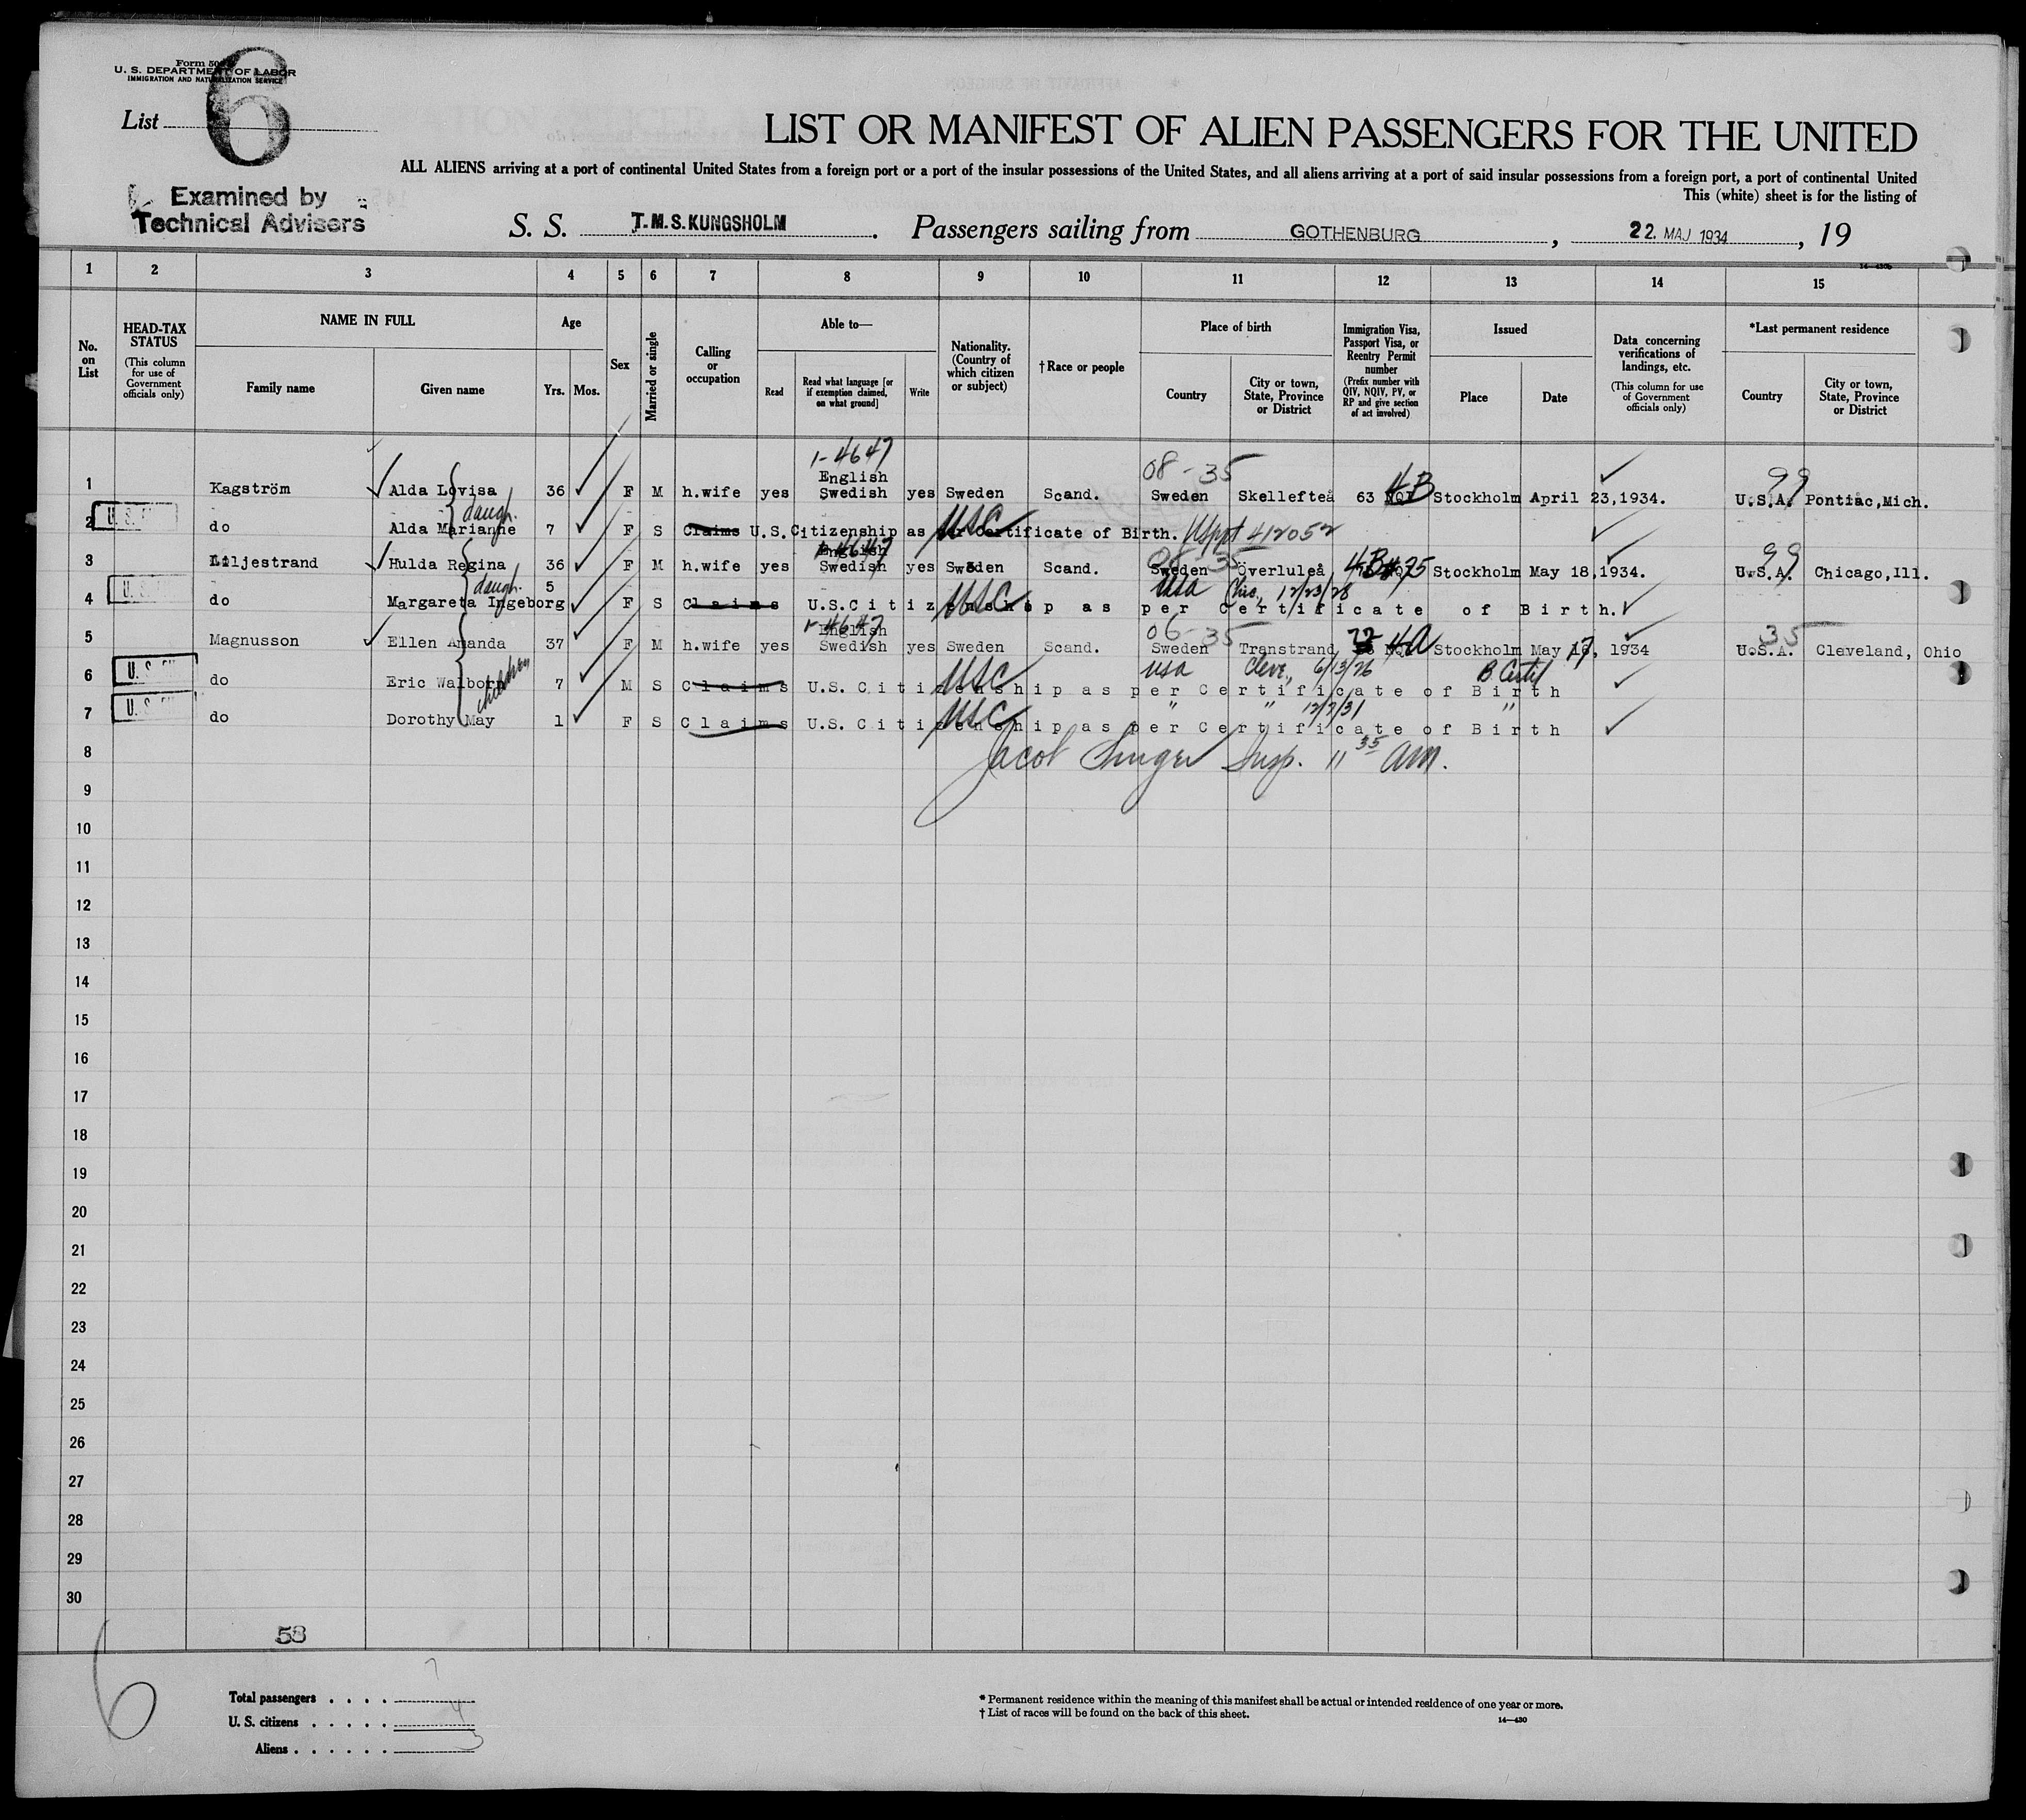 Form 500
U. S. DEPARTMENT OF LABOR
IMMIGRATION AND NATURALIZATION SERVICE
List 6
LIST OR MANIFEST OF ALIEN PASSENGERS FOR THE UNITED
ALL ALIENS arriving at a port of continental United States from a foreign port or a port of the insular possessions of the United States, and all aliens arriving at a port of said insular possessions from a foreign port, a port of continental United
This (white) sheet is for the listing of
Examined by
Technical Advisers
S. S. T.M.S. KUNGSHOLM . Passengers sailing from GOTHENBURG , 22. MAJ 1934 , 19
1 2 3 4 5 6 7 8 9 10 11 12 13 14 15
No. on List
HEAD-TAX STATUS
(This column for use of Government officials only)
NAME IN FULL
Family name
Given name
Age
Yrs.
Mos.
Sex
Married or single
Calling or occupation
Able to—
Read
Read what language [or if exemption claimed, on what ground]
Write
Nationality. (Country of which citizen or subject)
† Race or people
Place of birth
Country
City or town, State, Province or District
Immigration Visa, Passport Visa, or Reentry Permit number
(Prefix number with QIV, NQIV, PV, or RP and give section of act involved)
Issued
Place
Date
Data concerning verifications of landings, etc.
(This column for use of Government officials only)
*Last permanent residence
Country
City or town, State, Province or District
1-4647 08-35 99
1 Kagström Alda Lovisa 36 F M h.wife yes English Swedish yes Sweden Scand. Sweden Skellefteå 63 4B Stockholm April 23,1934. U.S.A. Pontiac,Mich.
daugh.
2 do Alda Marianne 7 F S Claims U.S.Citizenship as per Certificate of Birth. USC USppt 412052
1-4647 08-35 99
3 Liljestrand Hulda Regina 36 F M h.wife yes English Swedish yes Sweden Scand. Sweden Överluleå 4B #75 Stockholm May 18,1934. U.S.A. Chicago,Ill.
daugh. USA Chic., 12/23/28
4 do Margareta Ingeborg 5 F S Claims U.S.Citizenship as per Certificate of Birth. USC
1-4647 06-35 35
5 Magnusson Ellen Amanda 37 F M h.wife yes English Swedish yes Sweden Scand. Sweden Transtrand 4a Stockholm May 17, 1934 U.S.A. Cleveland, Ohio
children USA Cleve., 6/13/26 B. Certif
6 do Eric Walborn 7 M S Claims U.S. Citizenship as per Certificate of Birth USC
" " 12/7/31 "
7 do Dorothy May 1 F S Claims U.S. Citizenship as per Certificate of Birth USC
8 Jacob Singer Insp. 11 35 AM.
9
10
11
12
13
14
15
16
17
18
19
20
21
22
23
24
25
26
27
28
29
30
58
6
Total passengers . . . . 7
U. S. citizens . . . . . 4
Aliens . . . . . . 3
* Permanent residence within the meaning of this manifest shall be actual or intended residence of one year or more.
† List of races will be found on the back of this sheet.
14—430